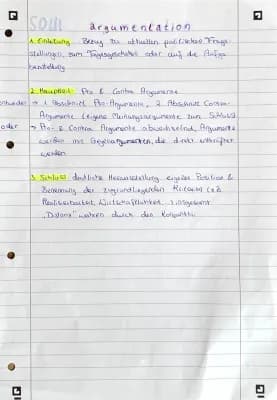 SoWi argumentation
1. Einleitung: Bezug zu aktuellen politischen Frage-
stellungen, zum Tagesgeschehen oder auf die Aufga
benstellung
2. Hauptteil: Pro & Contra Argumente
entweder → 1. Abschnitt Pro-Argumente, 2. Abschnitt Contra-
Argumente (eigene Meinungsargumente zum Schluss)
oder → Pro- & Contra Argumente abwechselnd, Argumente
werden mit Gegenargumenten, die direkt entkräftet
werden
3. Schluss: deutliche Herausstellung eigener Position &
Benennung der zugrundliegenden Kriterien (z.B.
Realisierbarkeit, Wirtschaftlichkeit), insgesamt
„Distanz" wahren durch den Konjunktiv